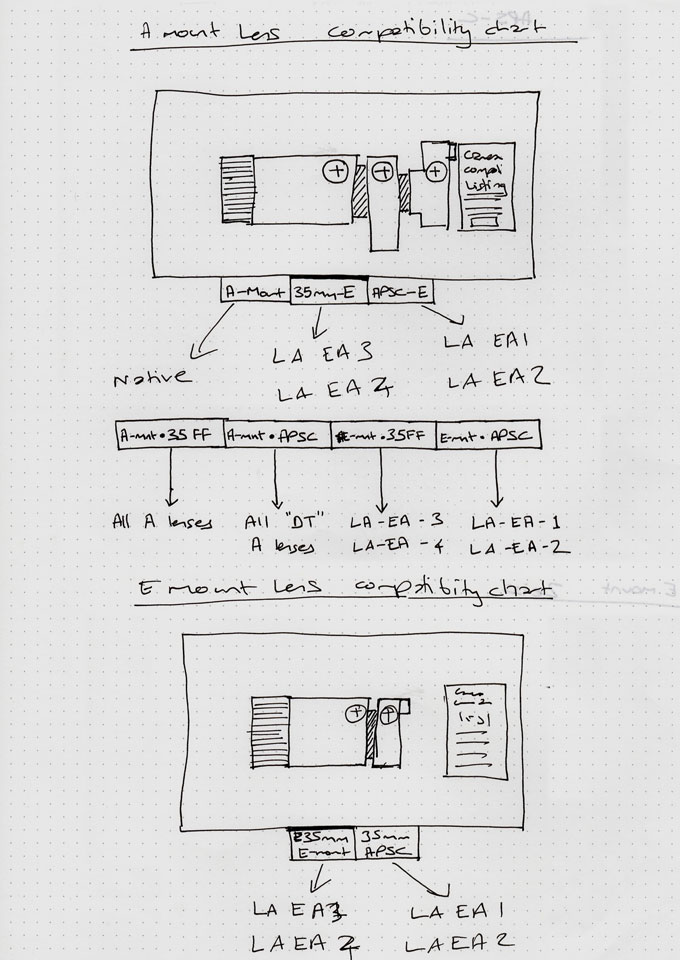 A mount Lens compatibility chart
camera
compati
listing
A-Mount 35mm-E APSC-E
Native
LA EA 3
LA EA 4
LA EA1
LA EA2
A-mnt•35 FF A-mnt•APSC E-mnt•35FF E-mnt•APSC
All A lenses
All "DT"
A lenses
LA-EA-3
LA-EA-4
LA-EA-1
LA-EA-2
E mount Lens compatibility chart
35mm
E-mount
35mm
APSC
LA EA3
LA EA 4
LA EA 1
LA EA 2